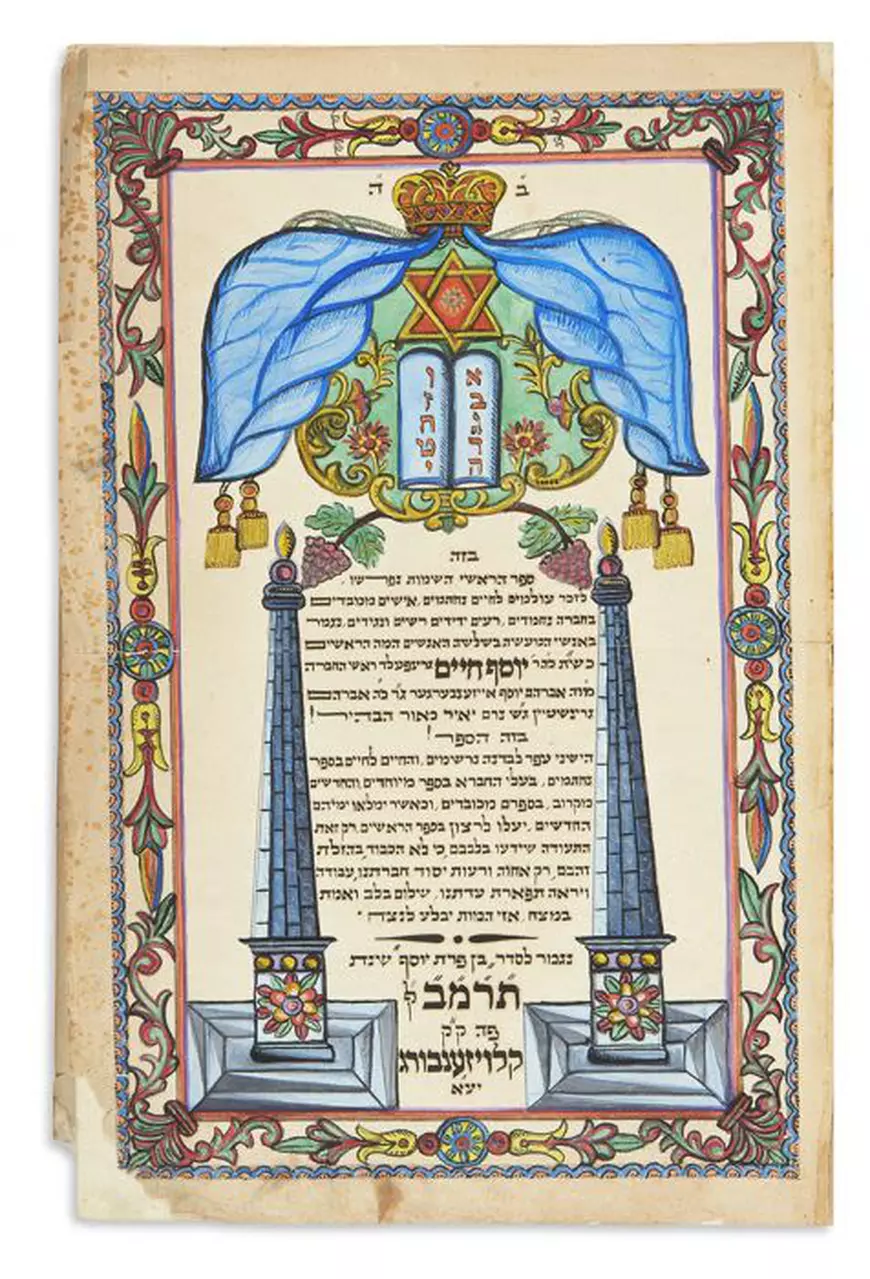 ב ה
א
ב
ג
ד
ה
ו
ז
ח
ט
י
בזה
ספר הראשי השמות נפרשו,
לזכר עולמים לחיים נחתמים, אישים מכובדים
בחברה נחמדים, רעים ידידים רשים ונגידים, נגמר
באנשי הנועשיה בשלשה האנשים המה הראשים
כש״ת כהר׳ יוסף חיים גרינפעלד ראש החברה
מו״ה אברהם יוסף אייזענבערגער גר׳ לה׳ אברהם
גרינשטיין נרם יאיר כאור הבהיר!
בזה הספר!
הישיני עפר לברכה נרשימים, והחיים לחיים בספר
נחתמים, בעלי החברא בספר מיוחדים, והחדשים
מקרוב, בספרם מכובדים, וכאשר ימלאו ימיהם
החדשים, יעלו לרצון בספר הראשים, רק זאת
התעודה שידעו בלבבם, כי לא הכבוד, בהזלת
זהבם, רק אחוה ורעות יסוד חברתנו, עבודה
ויראה תפארת עדתנו, שלום בלב ואמת
במצח, אזי המות יבלע לנצח.
נגמר לסדר, בן פרת יוסף, שינת
תרמ״ב ל׳
פה ק״ק
קלויזענבורג
יע״א